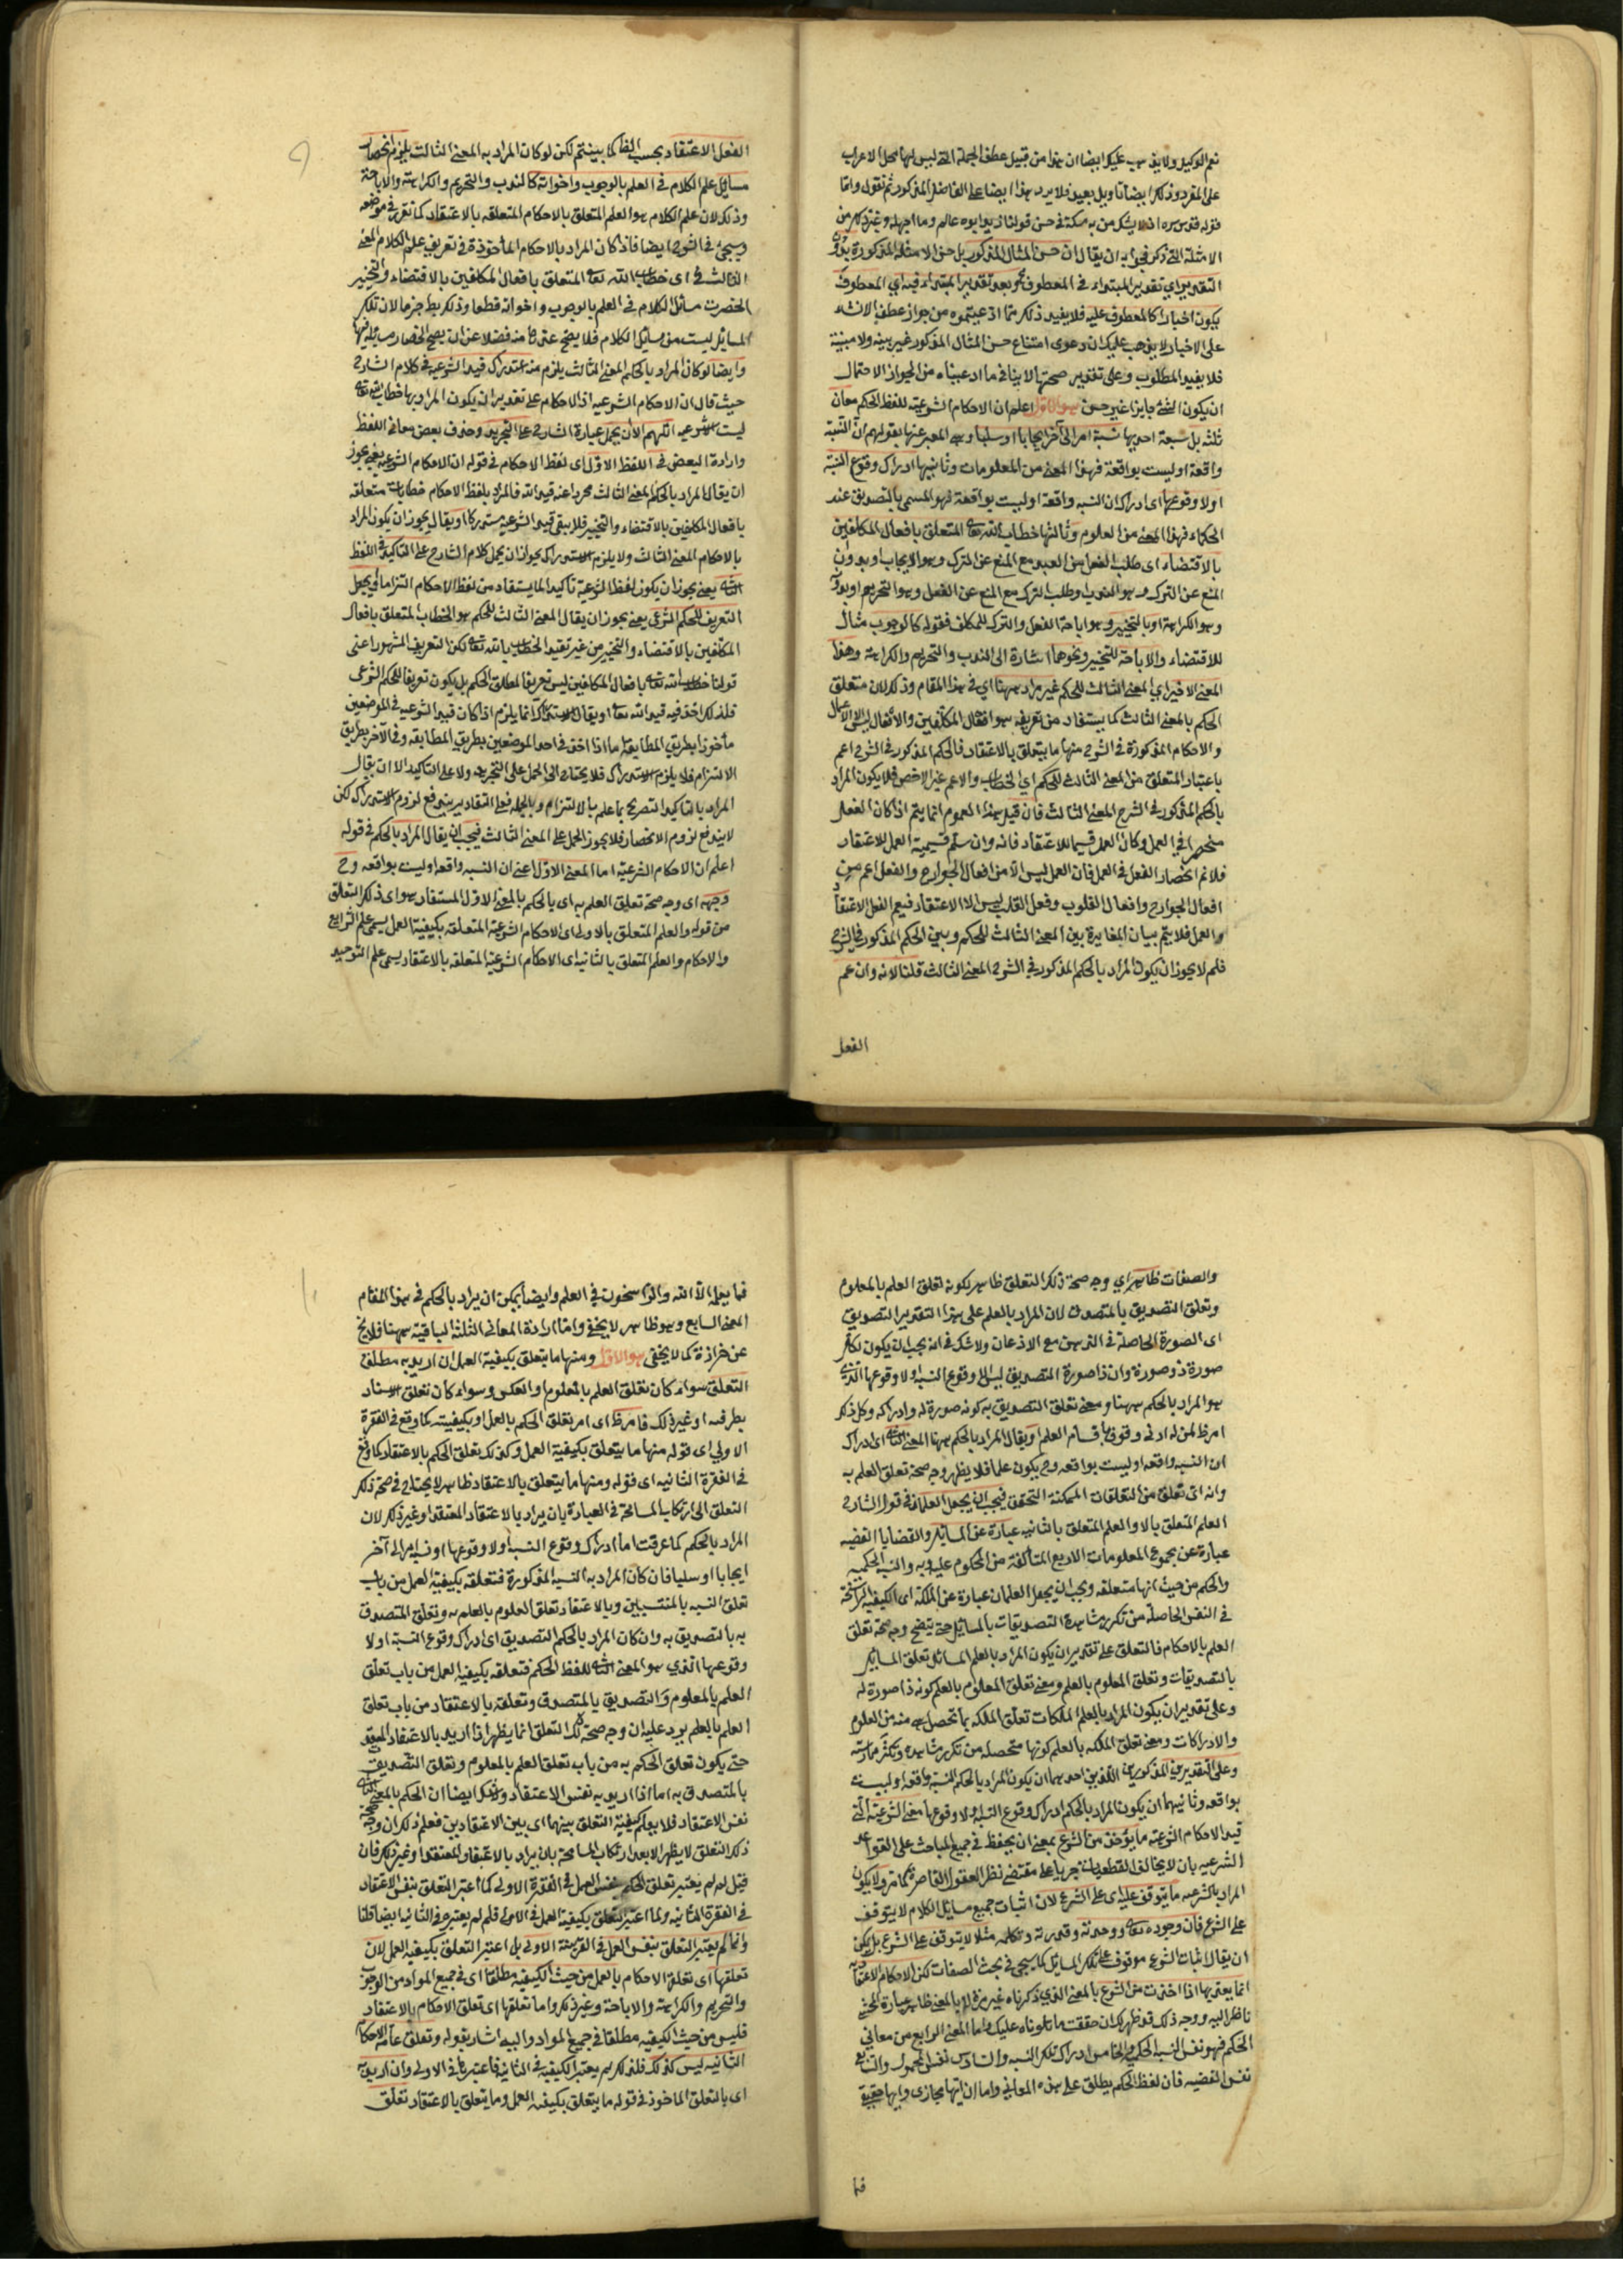 نعم الوكيل ولا يذهب عليك ايضا ان هذا من قبيل عطف الجملة التى ليس لها محل الاعراب
على المفرد وذلك ايضا تاويل بعيد ولا يرد هذا ايضا على الفاضل المذكور ثم نقول واما
قوله قدس سره اذ لا يشك من به مسكة فى حسن قولنا زيد ابوه عالم وما اجهله وغير ذلك من
الامثلة التى ذكر فجوابه ان يقال ان حسن المثال المذكور بل حسن الامثلة المذكورة بدون
التقدير اي تقدير المبتداء فى المعطوف مم وبعد تقدير المبتداء فيه اي المعطوف
يكون اخبارا كالمعطوف عليه فلا يفيد ذلك ما ادعيتموه من جواز عطف الانشاء
على الاخبار لا يذهب عليك ان دعوى امتناع حسن المثال المذكور غير بينه ولا مبينة
فلا يفيد المطلوب وعلى تقدير صحتها لا ينافى ما ادعيناه من الجواز لاحتمال
ان يكون الشئ جايزا غير حسن هو الاول اعلم ان الاحكام الشرعية للفظ الحكم معان
ثلثه بل سبعة احديها نسبة امر الى آخر ايجابا او سلبا وهى المعبر عنها بقولهم ان النسبة
واقعة او ليست بواقعة فهذا المعنى من المعلومات وثانيها ادراك وقوع النسبة
او لا وقوعها اى ادراك ان النسبه واقعة او ليست بواقعة فهو المسمى بالتصديق عند
الحكماء فهذا المعنى من العلوم وثالثها خطاب الله تعالى المتعلق بافعال المكلفين
بالاقتضاء اى طلب الفعل من العبد مع المنع عن الترك وهو الايجاب او بدون
المنع عن الترك وهو الندب او طلب الترك مع المنع عن الفعل وهو التحريم او بدونه
وهو الكراهة او بالتخيير وهو اباحة الفعل والترك للمكلف فقوله كالوجوب مثال
للاقتضاء والاباحة للتخيير ونحوهما اشارة الى الندب والتحريم والكراهة وهذا
المعنى الاخير اي المعنى الثالث للحكم غير مراد ههنا اي فى هذا المقام وذلك لان متعلق
الحكم بالمعنى الثالث كما يستفاد من تعريفه هو افعال المكلفين والافعال هى الاعمال
والاحكام المذكورة فى الشرح منها ما يتعلق بالاعتقاد فالحكم المذكور فى الشرح اعم
باعتبار المتعلق من المعنى الثالث للحكم اي الخطاب والاعم غير الاخص فلا يكون المراد
بالحكم المذكور فى الشرح المعنى الثالث فان قيل هذا العموم انما يتم اذا كان الفعل
منحصرا فى العمل وكان العمل قسيما للاعتقاد فانه وان سلم قسيمية العمل للاعتقاد
فلا نم انحصار الفعل فى العمل فان العمل ليس الا من افعال الجوارح والفعل اعم من
افعال الجوارح وافعال القلوب وفعل القلب ليس الا الاعتقاد فيعم الفعل الاعتقاد
والعمل فلا يتم بيان المغايرة بين المعنى الثالث للحكم وبين الحكم المذكور فى الشرح
فلم لا يجوز ان يكون المراد بالحكم المذكور فى الشرح المعنى الثالث قلنا لانه وان عم
الفعل
الفعل الاعتقاد بحسب اللفظ كما بينتم لكن لو كان المراد به المعنى الثالث يلزم انحصار
مسائل علم الكلام فى العلم بالوجوب واخواته كالندب والتحريم والكراهة والاباحة
وذلك لان علم الكلام هو العلم المتعلق بالاحكام المتعلقه بالاعتقاد كما تقرر فى موضعه
وسيجئ فى الشرح ايضا فاذا كان المراد بالاحكام المأخوذة فى تعريف علم الكلام المعنى
الثالث اى خطاب الله تعالى المتعلق بافعال المكلفين بالاقتضاء والتخيير
انحصرت مسائل الكلام فى العلم بالوجوب واخواته قطعا وذلك بط جزما لان تلك
المسائل ليست من مسائل الكلام فلا يصح عدها منه فضلا عن ان يصح انحصار مسايله فيها
وايضا لو كان المراد بالحكم المعنى الثالث يلزم منه استدراك قيد الشرعيه فى كلام الشارح
حيث قال ان الاحكام الشرعيه اذ الاحكام على تقدير ان يكون المراد بها خطاب الله تعالى
ليست الا شرعيه اللهم الا ان يحمل عبارة الشارح على التجريد وحذف بعض معانى اللفظ
وارادة البعض فى اللفظ الاول اى لفظ الاحكام فى قوله ان الاحكام الشرعيه يعنى يجوز
ان يقال المراد بالحكم المعنى الثالث مجردا عنه قيد الله فالمراد بلفظ الاحكام خطابات متعلقه
بافعال المكلفين بالاقتضاء والتخيير فلا يبقى قيد الشرعيه مستدركا او يقال يجوز ان يكون المراد
بالاحكام المعنى الثالث ولا يلزم الاستدراك بجواز ان يحمل كلام الشارح على التاكيد فى اللفظ
الثانى يعنى يجوز ان يكون لفظ الشرعية تاكيدا لما يستفاد من لفظ الاحكام التزاما او يجعل
التعريف للحكم الشرعى يعنى يجوز ان يقال المعنى الثالث للحكم هو الخطاب المتعلق بافعال
المكلفين بالاقتضاء والتخيير من غير تقييد الخطاب بالله تعالى لكن التعريف المشهور اعنى
قولنا خطاب الله تعالى بافعال المكلفين ليس تعريفا لمطلق الحكم بل يكون تعريفا للحكم الشرعى
فلذلك اخذ فيه قيد الله تعالى او يقال الاستدراك انما يلزم اذا كان قيد الشرعيه فى الموضعين
مأخوذا بطريق المطابقه اما اذا اخذ فى احد الموضعين بطريق المطابقه وفى الآخر بطريق
الالتزام فلا يلزم الاستدراك فلا يحتاج الى الحمل على التجريد ولا على التاكيد الا ان يقال
المراد بالتاكيد التصريح بما علم بالالتزام وبالجملة فعلى التقادير يندفع لزوم الاستدراك لكن
لا يندفع لزوم الانحصار فلا يجوز الحمل على المعنى الثالث فيجب ان يقال المراد بالحكم فى قوله
اعلم ان الاحكام الشرعيه اما المعنى الاول اعنى ان النسبه واقعه او ليست بواقعه وح
وجه اى وجه صحة تعلق العلم به اى بالحكم بالمعنى الاول المستفاد هو اى ذلك التعلق
من قوله والعلم المتعلق بالاولى اى الاحكام الشرعية المتعلقه بكيفية العمل يسمى علم الشرايع
والاحكام والعلم المتعلق بالثانيه اى الاحكام الشرعية المتعلقه بالاعتقاد يسمى علم التوحيد
والصفات ظاهر اي وجه صحة ذلك التعلق ظاهر بكونه تعلق العلم بالمعلوم
وتعلق التصديق بالمتصدق لان المراد بالعلم على هذا التقدير التصديق
اى الصورة الحاصلة فى الذهن مع الاذعان ولا شك فى انه يجب ان يكون لكل
صورة ذو صورة وان ذا صورة التصديق ليس الا وقوع النسبه او لا وقوعها الذى
هو المراد بالحكم ههنا ومعنى تعلق التصديق به كونه صورة له وادراكه وكل ذلك
امر ظ لمن له ادنى وقوف باقسام العلم او يقال المراد بالحكم ههنا المعنى الثانى اى ادراك
ان النسبه واقعه او ليست بواقعه وح يكون علما فلا يظهر وجه صحة تعلق العلم به
وانه اى تعلق من التعلقات الممكنة التحقق فيجب ان يجعل العلمان فى قول الشارح
العلم المتعلق بالاولى والعلم المتعلق بالثانيه عبارة عن المسائل والقضايا القضيه
عبارة عن مجموع المعلومات الاربع المتألفة من المحكوم عليه وبه والنسبه الحكميه
والحكم من حيث انها متعلقه ويجب ان يجعل العلمان عبارة عن الملكة اى الكيفية الراسخة
فى النفس الحاصلة من تكرر مشاهدة التصديقات بالمسائل حتى يتضح وجه صحة تعلق
العلم بالاحكام فالتعلق على تقدير ان يكون المراد بالعلم المسائل تعلق المسائل
بالتصديقات وتعلق المعلوم بالعلم ومعنى تعلق المعلوم بالعلم كونه ذا صورة له
وعلى تقدير ان يكون المراد بالعلم الملكات تعلق الملكه بما تحصل هى منه من العلوم
والادراكات ومعنى تعلق الملكه بالعلم كونها متحصله من تكرر مشاهده وتكثر ممارسته
وعلى التقديرين المذكورين اللذين احدهما ان يكون المراد بالحكم النسبه واقعه او ليست
بواقعه وثانيهما ان يكون المراد بالحكم ادراك وقوع النسبه او لا وقوعها معنى الشرعيه التى
قيد الاحكام الشرعيه ما يؤخذ من الشرع بمعنى ان يحفظ فى جميع المباحث على القواعد
الشرعيه بان لا يخالف القطعيات جريا على مقتضى نظر العقول القاصرة كما مر ولا يكون
المراد بالشرعيه ما يتوقف عليه اى على الشرع لان اثبات جميع مسايل الكلام لا يتوقف
على الشرع فان وجوده تعالى ووحدته وقدرته وكلامه مثلا لا يتوقف على الشرع بل يمكن
ان يقال اثبات الشرع موقوف على تلك المسايل كما سيجئ فى بحث الصفات لكن الاحكام الاعتقاديه
انما يعتد بها اذا اخذت من الشرع بالمعنى الذى ذكرناه غير مرة
ناظر اليه ووجه ذلك قد ظهر لك ان حققت ما تلوناه عليك واما المعنى الرابع من معانى
الحكم فهو نفس النسبه الحكميه والخامس ادراك تلك النسبه والسادس نفس المحمول والسابع
نفس القضيه فان لفظ الحكم يطلق على هذه المعانى واما ان ايها مجازى وايها حقيقة
فما
فما يعلمه الا الله والراسخون فى العلم وايضا يمكن ان يراد بالحكم فى هذا المقام
المعنى السابع وهو ظاهر لا يخفى واما ارادة المعانى الثلثة الباقية ههنا فلا يخ
عن حزازة كما لا يخفى هو الاول ومنها ما يتعلق بكيفية العمل ان اريد به مطلق
التعلق سواء كان تعلق العلم بالمعلوم او العكس وسواء كان تعلق الاسناد
بطرفيه او غير ذلك فامر ظ اى امر تعلق الحكم بالعمل او بكيفيته كما وقع فى الفقرة
الاولى اى قوله منها ما يتعلق بكيفية العمل وكذلك تعلق الحكم بالاعتقاد كما وقع
فى الفقرة الثانيه اى قوله ومنها ما يتعلق بالاعتقاد ظاهر لا يحتاج فى صحة ذلك
التعلق الى ارتكاب المسامحة فى العبارة بان يراد بالاعتقاد المعتقد او غير ذلك لان
المراد بالحكم كما عرفت اما ادراك وقوع النسبه او لا وقوعها او نسبة امر الى آخر
ايجابا او سلبا فان كان المراد به النسبة المذكورة فتعلقه بكيفية العمل من باب
تعلق النسبه بالمنتسبين وبالاعتقاد تعلق المعلوم بالعلم به وتعلق المتصدق
به بالتصديق به وان كان المراد بالحكم التصديق اى ادراك وقوع النسبة او لا
وقوعها الذي هو المعنى الثانى للفظ الحكم فتعلقه بكيفية العمل من باب تعلق
العلم بالمعلوم والتصديق بالمتصدق وتعلقه بالاعتقاد من باب تعلق
العلم بالعلم يرد عليه ان وجه صحة ذلك التعلق انما يظهر اذا اريد بالاعتقاد المعتقد
حتى يكون تعلق الحكم به من باب تعلق العلم بالمعلوم وتعلق التصديق
بالمتصدق به اما اذا اريد به نفس الاعتقاد ايضا ان الحكم بالمعنى الثانى
نفس الاعتقاد فلا يعلم كيفية التعلق بينهما اى بين الاعتقادين فعلم ذلك ان وجه صحة
ذلك التعلق لا يظهر الا بعد ارتكاب المسامحة بان يراد بالاعتقاد المعتقد او غير ذلك فان
قيل لم لم يعتبر تعلق الحكم بنفس العمل فى الفقرة الاولى كما اعتبر التعلق بنفس الاعتقاد
فى الفقرة الثانيه ولما اعتبر التعلق بكيفية العمل فى الاولى فلم لم يعتبره فى الثانيه ايضا قلنا
وانما لم يعتبر التعلق بنفس العمل فى القرينة الاولى بل اعتبر التعلق بكيفية العمل لان
تعلقها اى تعلق الاحكام بالعمل من حيث الكيفية مطلقا اى فى جميع المواد من الوجوب
والتحريم والكراهة والاباحة وغير ذلك واما تعلقها اى تعلق الاحكام بالاعتقاد
فليس من حيث الكيفيه مطلقا فى جميع المواد واليه اشار بقوله وتعلق عامة الاحكام
الثانيه ليس كذلك فلذلك لم يعتبر الكيفيه فى الثانيه واعتبرها فى الاولى وان اريد به
اى بالتعلق الماخوذ فى قوله ما يتعلق بكيفية العمل وما يتعلق بالاعتقاد تعلق